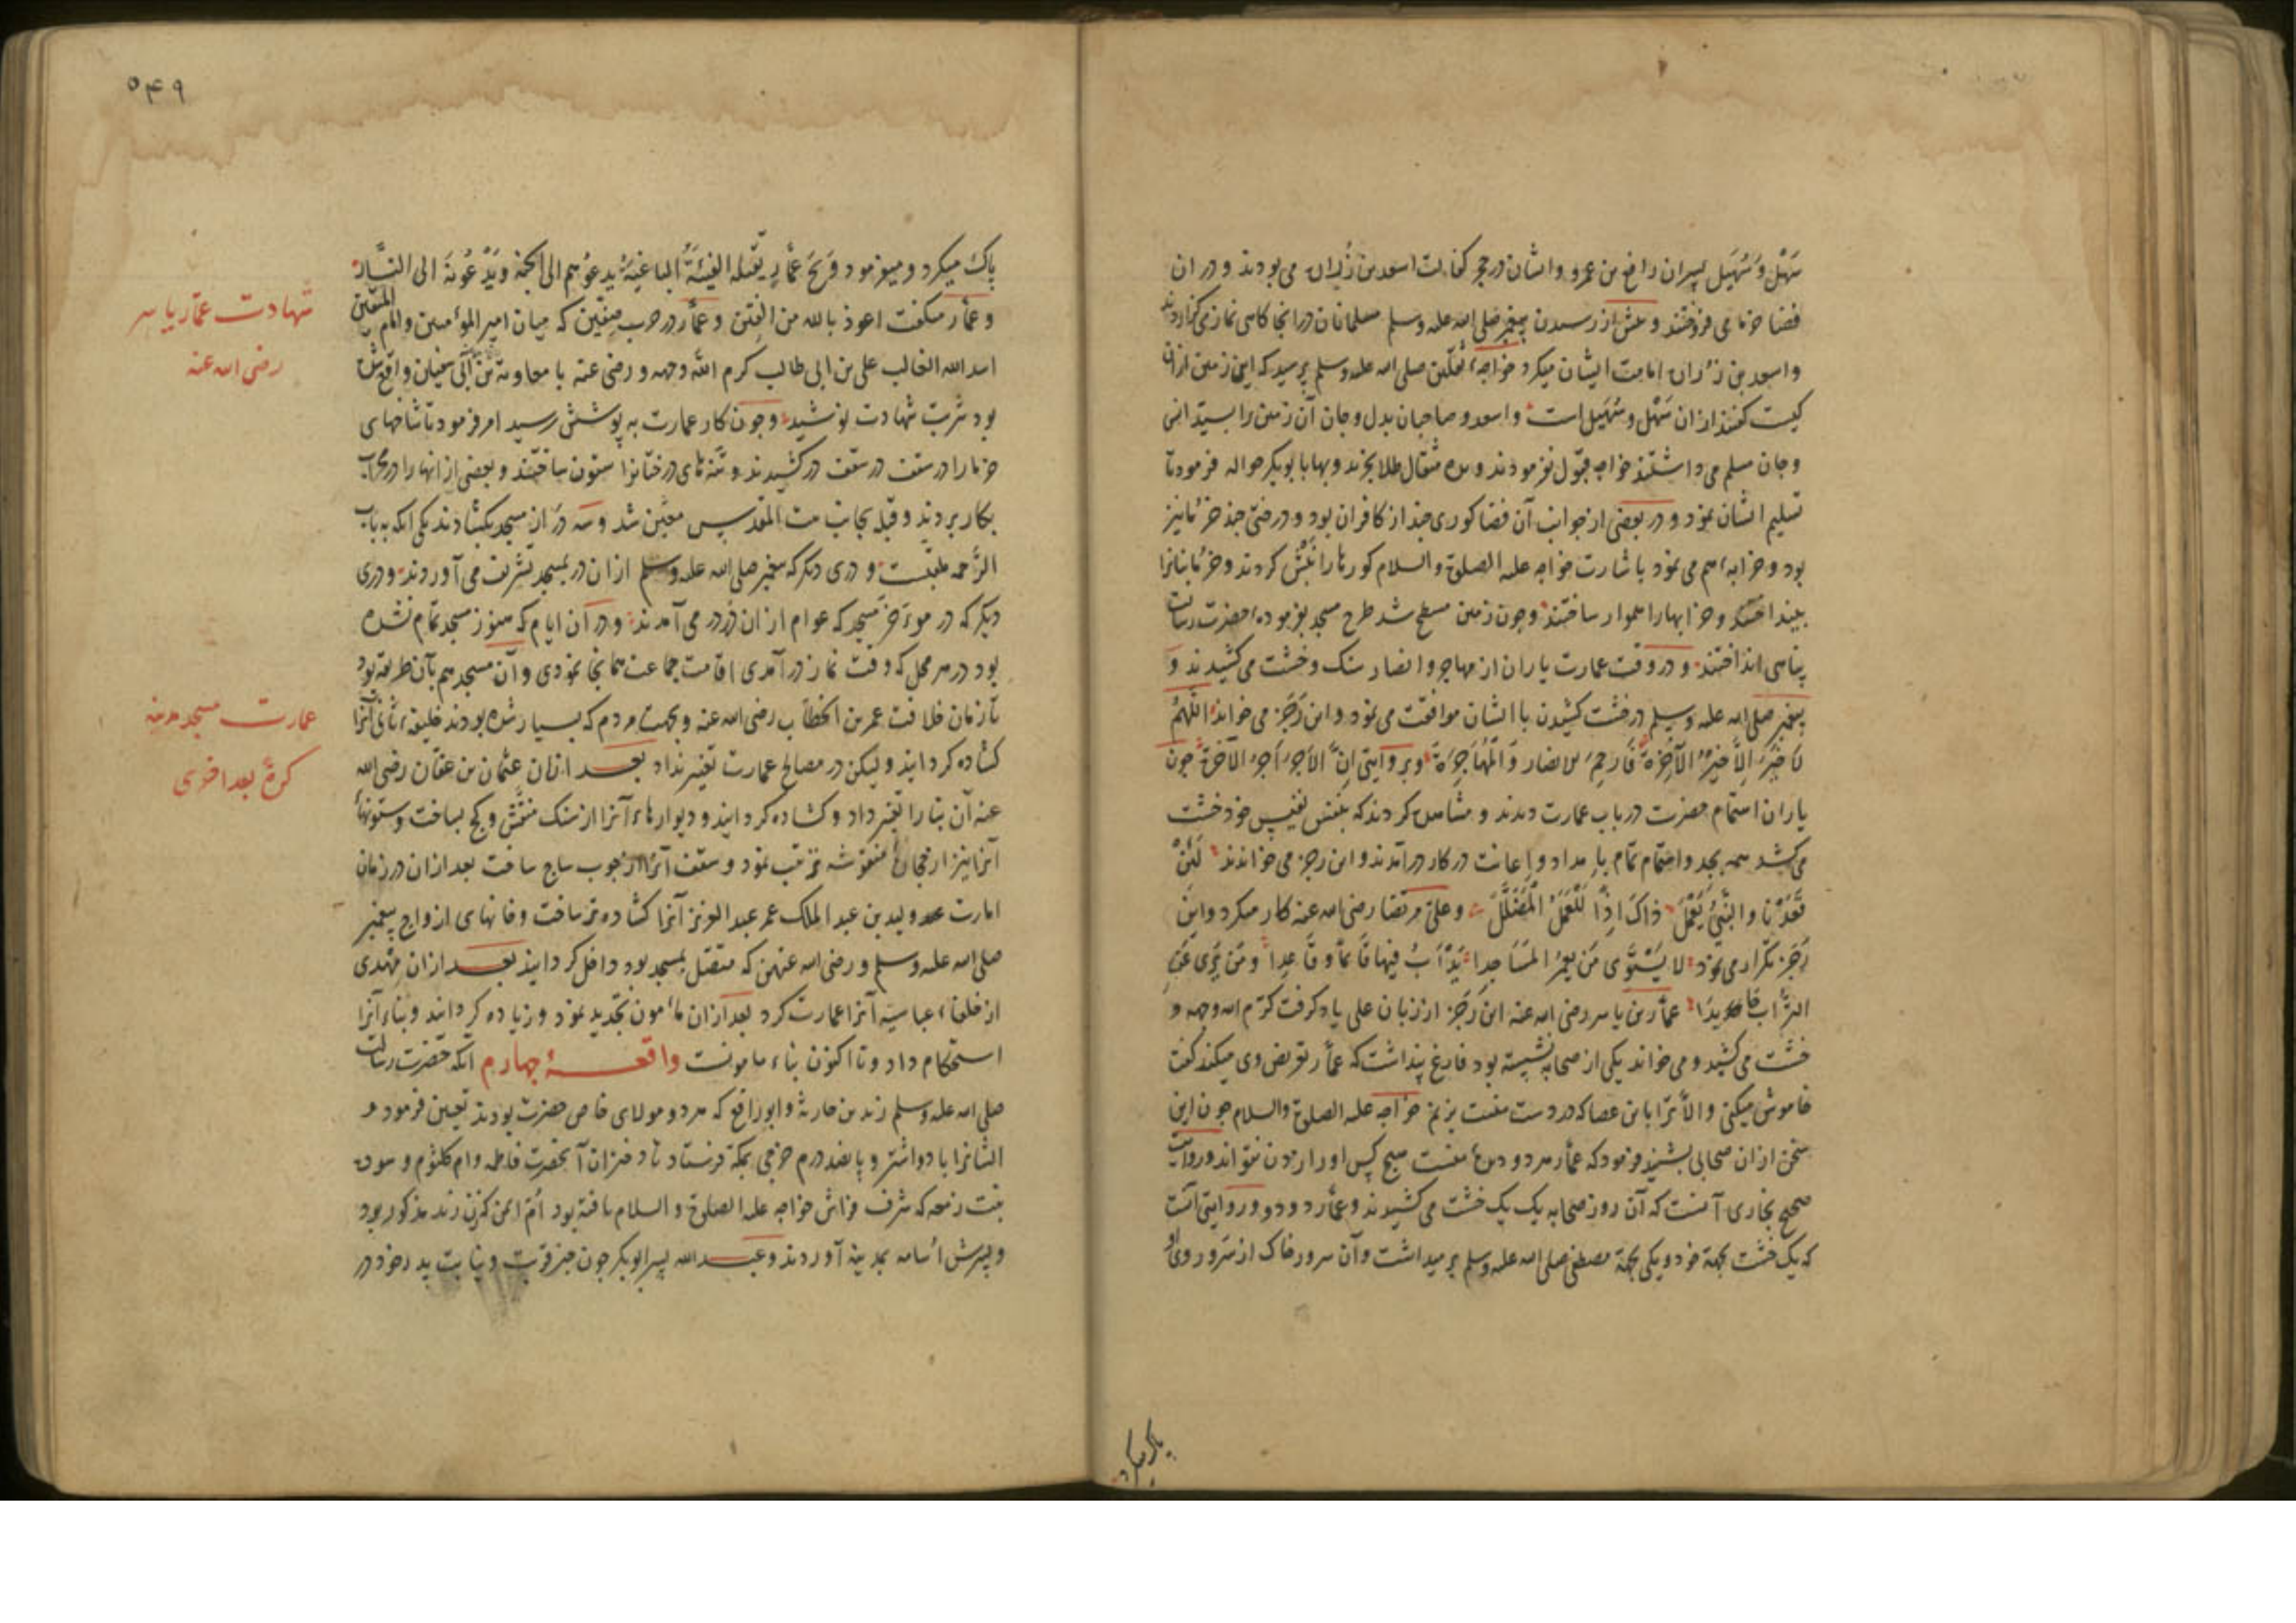 سَهْل و سُهَیل پسران رافع بن عمرو و ایشان در حجر کفالت اسعد بن زُراره می بودند و در ان
فضا خرما می فروختند و پیش از رسیدن پیغمبر صلی الله علیه وسلم مسلمانان در انجا کاهی نماز می کزاردند
و اسعد بن زراره امامت ایشان میکرد خواجهٔ ثقلین صلی الله علیه وسلم پرسید که این زمین ازان
کیست گفتند ازان سَهْل و سُهَیل است و اسعد و صاحبان بدل و جان آن زمین را
و جان مسلم می داشتند خواجه قبول نفرمودند و بده مثقال طلا بخرند و بها بابوبکر حواله فرمود تا
تسلیم ایشان نمود و در بعضی از جوانب آن فضا کوری چند از کافران بود و درختی چند خرما نیز
بود و خرابهٔ هم می نمود باشارت خواجه علیه الصلوة والسلام کورها را نَبْش کردند و خرما بنانرا
بینداختند و خرابهارا هموار ساختند وچون زمین مسطح شد طرح مسجد بفرمودهٔ حضرت رسالت
پناهی انداختند و در وقت عمارت یاران از مهاجر و انصار سنک و خشت می کشیدند و
پیغمبر صلی الله علیه وسلم در خشت کشیدن با ایشان موافقت می نمود و این رَجَز می خواند اللّهُمَّ
لا خَیْرَ اِلّا خَیْرُ الآخِرَة فَارحِمِ الانصار وَالْمُهاجِرَة و بروایتی اِنَّ الاَجرَ اَجرُ الآخِرَة چون
یاران اهتمام حضرت در باب عمارت دیدند و مشاهده کردند که بنفس نفیس خود خشت
می کشد همه بجد و اهتمام تمام بامداد و اعانت در کار درآمدند و این رجز می خواندند لَئِنْ
قَعَدْنا والنَّبِیُّ یَعْمَل ذاک اِذًا لَلْعَمَلُ الْمُضَلَّل و علی مرتضا رضی الله عنه کار میکرد و این
رَجَز تکرار می نمود لا یَسْتَوِی مَن یَعمُرُ المَسَاجِدا یَدْاَبُ فیها قَائماً و قَاعِداً ومَن یُری عَنِ
التُّرابِ حَایِدَا عمّار بن یاسر رضی الله عنه این رَجَز از زبان علی یاد کرفت کرّم الله وجهه و
خشت می کشید و می خواند یکی از صحابه نشسته بود فارغ پنداشت که عمّار تعریض وی میکند گفت
خاموش میکنی والّا ترا باین عصا که در دست منست بزنم خواجه علیه الصلوة والسلام چون این
سخن ازان صحابی بشنید فرمود که عمّار هر دو دیدهٔ منست هیچ کس اورا زدن نتواند و روایت
صحیح بخاری آنست که آن روز صحابه یک یک خشت می کشیدند و عمّار دو دو و روایتی آنست
که یک خشت بجهة خود و یکی بجهة مصطفی صلی الله علیه وسلم برمیداشت و آن سرور خاک از سر و روی او
پاک میکرد
۵۴۹
پاک میکرد و میفرمود وَیْحَ عَمّارٍ یقتله الفِئَةُ الباغیةُ یدعوهم الی الجنة ویَدْعُونَهُ الی النّار
و عمّار میگفت اعوذ بالله من الفِتَن و عمّار در حرب صِفّین که میان امیر المؤمنین و امام المتقین
اسد الله الغالب علی بن ابی طالب کرم الله وجهه و رضی عنه با معاویة بن ابی سفیان واقع شده
بود شربت شهادت نوشید وچون کار عمارت به پوشش رسید امر فرمود تا شاخهای
خرما را در سقف در کشیدند و تنه های درختانرا ستون ساختند و بعضی از انها را در محراب
بکار بردند و قبله بجانب بیت المقدس معیّن شد و سه در از مسجد بکشادند یکی انکه به باب
الرَّحمه ملقّبست و دری دیکر که پیغمبر صلی الله علیه وسلم ازان در بمسجد تشریف می آوردند و دری
دیکر که در مؤخّر مسجد که عوام ازان در در می آمدند و در آن ایام که هنوز مسجد تمام نشده
بود در هر محل که وقت نماز در آمدی اقامت جماعت همانجا نمودی و آن مسجد هم بآن طریقه بود
تا زمان خلافت عمر بن الخطّاب رضی الله عنه و بجهت مردم که بسیار شده بودند خلیفهٔ ثانی آنرا
کشاده کردانید ولیکن در مصالح عمارت تغییر نداد بعد ازان عثمان بن عفّان رضی الله
عنه آن بنا را تغییر داد و کشاده کردانید و دیوارهاء آنرا از سنک منقّش و کچ بساخت و ستونهاء
آنرا نیز از حجارهٔ منقوشه مرتب نمود و سقف آنرا از چوب ساج ساخت بعد ازان در زمان
امارت ولید بن عبد الملک عمر عبد العزیز آنرا کشاده تر ساخت و خانهای ازواج پیغمبر
صلی الله علیه وسلم و رضی الله عنهن که متصل بمسجد بود داخل کردانید بعد ازان مهدی
از خلفاء عباسیه آنرا عمارت کرد بعد ازان مأمون تجدید نمود و زیاده کردانید و بناء آنرا
استحکام داد و تا اکنون بناء مامونست واقعهٔ چهارم آنکه حضرت رسالت
صلی الله علیه وسلم زید بن حارثه و ابو رافع که هر دو مولای خاص حضرت بودند تعیین فرمود و
ایشانرا با دو اشتر و پانصد درم خرجی بمکه فرستاد تا دختران آنحضرت فاطمه و ام کلثوم و سوده
بنت زمعه که شرف فراش خواجه علیه الصلوة والسلام یافته بود اُمّ ایمن که زن زید مذکور بود
و پسرش اُسامه بمدینه آوردند و عبد الله پسر ابوبکر چون خبر قربت و نیابت پدر خود در
شهادت عمّار یاسر
رضی الله عنه
عمارت مسجد مدینه
کرةً بعد اخری